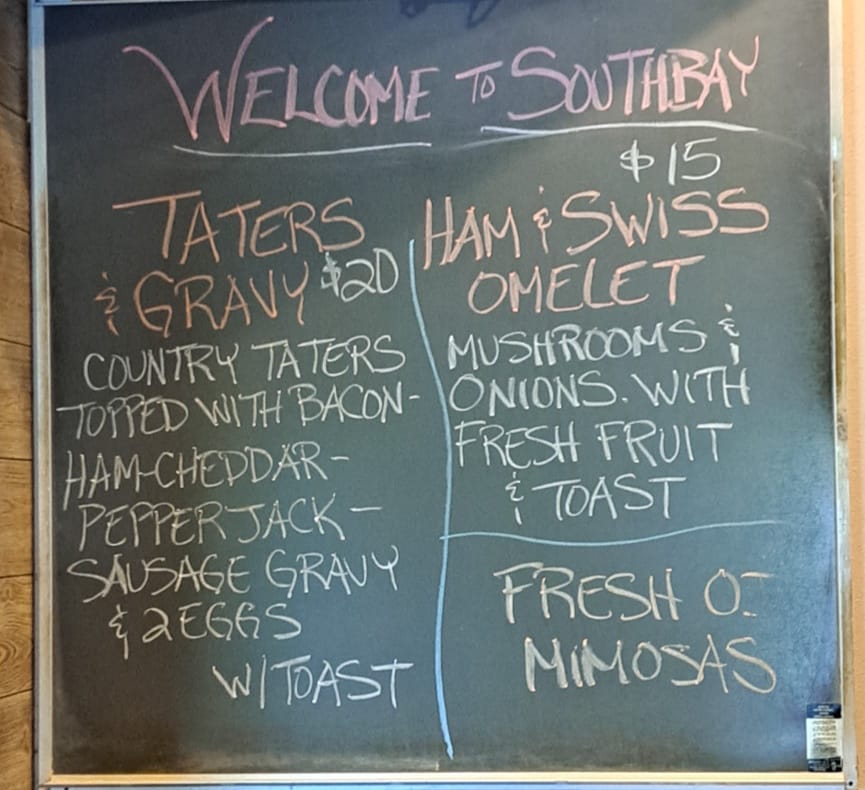 WELCOME TO SOUTHBAY
TATERS
& GRAVY $20
COUNTRY TATERS
TOPPED WITH BACON-
HAM-CHEDDAR-
PEPPER JACK-
SAUSAGE GRAVY
& 2 EGGS
W/ TOAST
$15
HAM & SWISS
OMELET
MUSHROOMS &
ONIONS. WITH
FRESH FRUIT
& TOAST
FRESH OJ
MIMOSAS